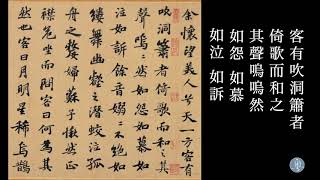 客有吹洞簫者
倚歌而和之
其聲嗚嗚然
如怨 如慕
如泣 如訴
余懷望美人兮天一方客有
吹洞簫者倚歌而和之其
聲嗚嗚然如怨如慕如
泣如訴餘音嫋嫋不絕如
縷舞幽壑之潛蛟泣孤
舟之嫠婦蘇子愀然正
襟危坐而問客曰何為其
然也客曰月明星稀烏鵲